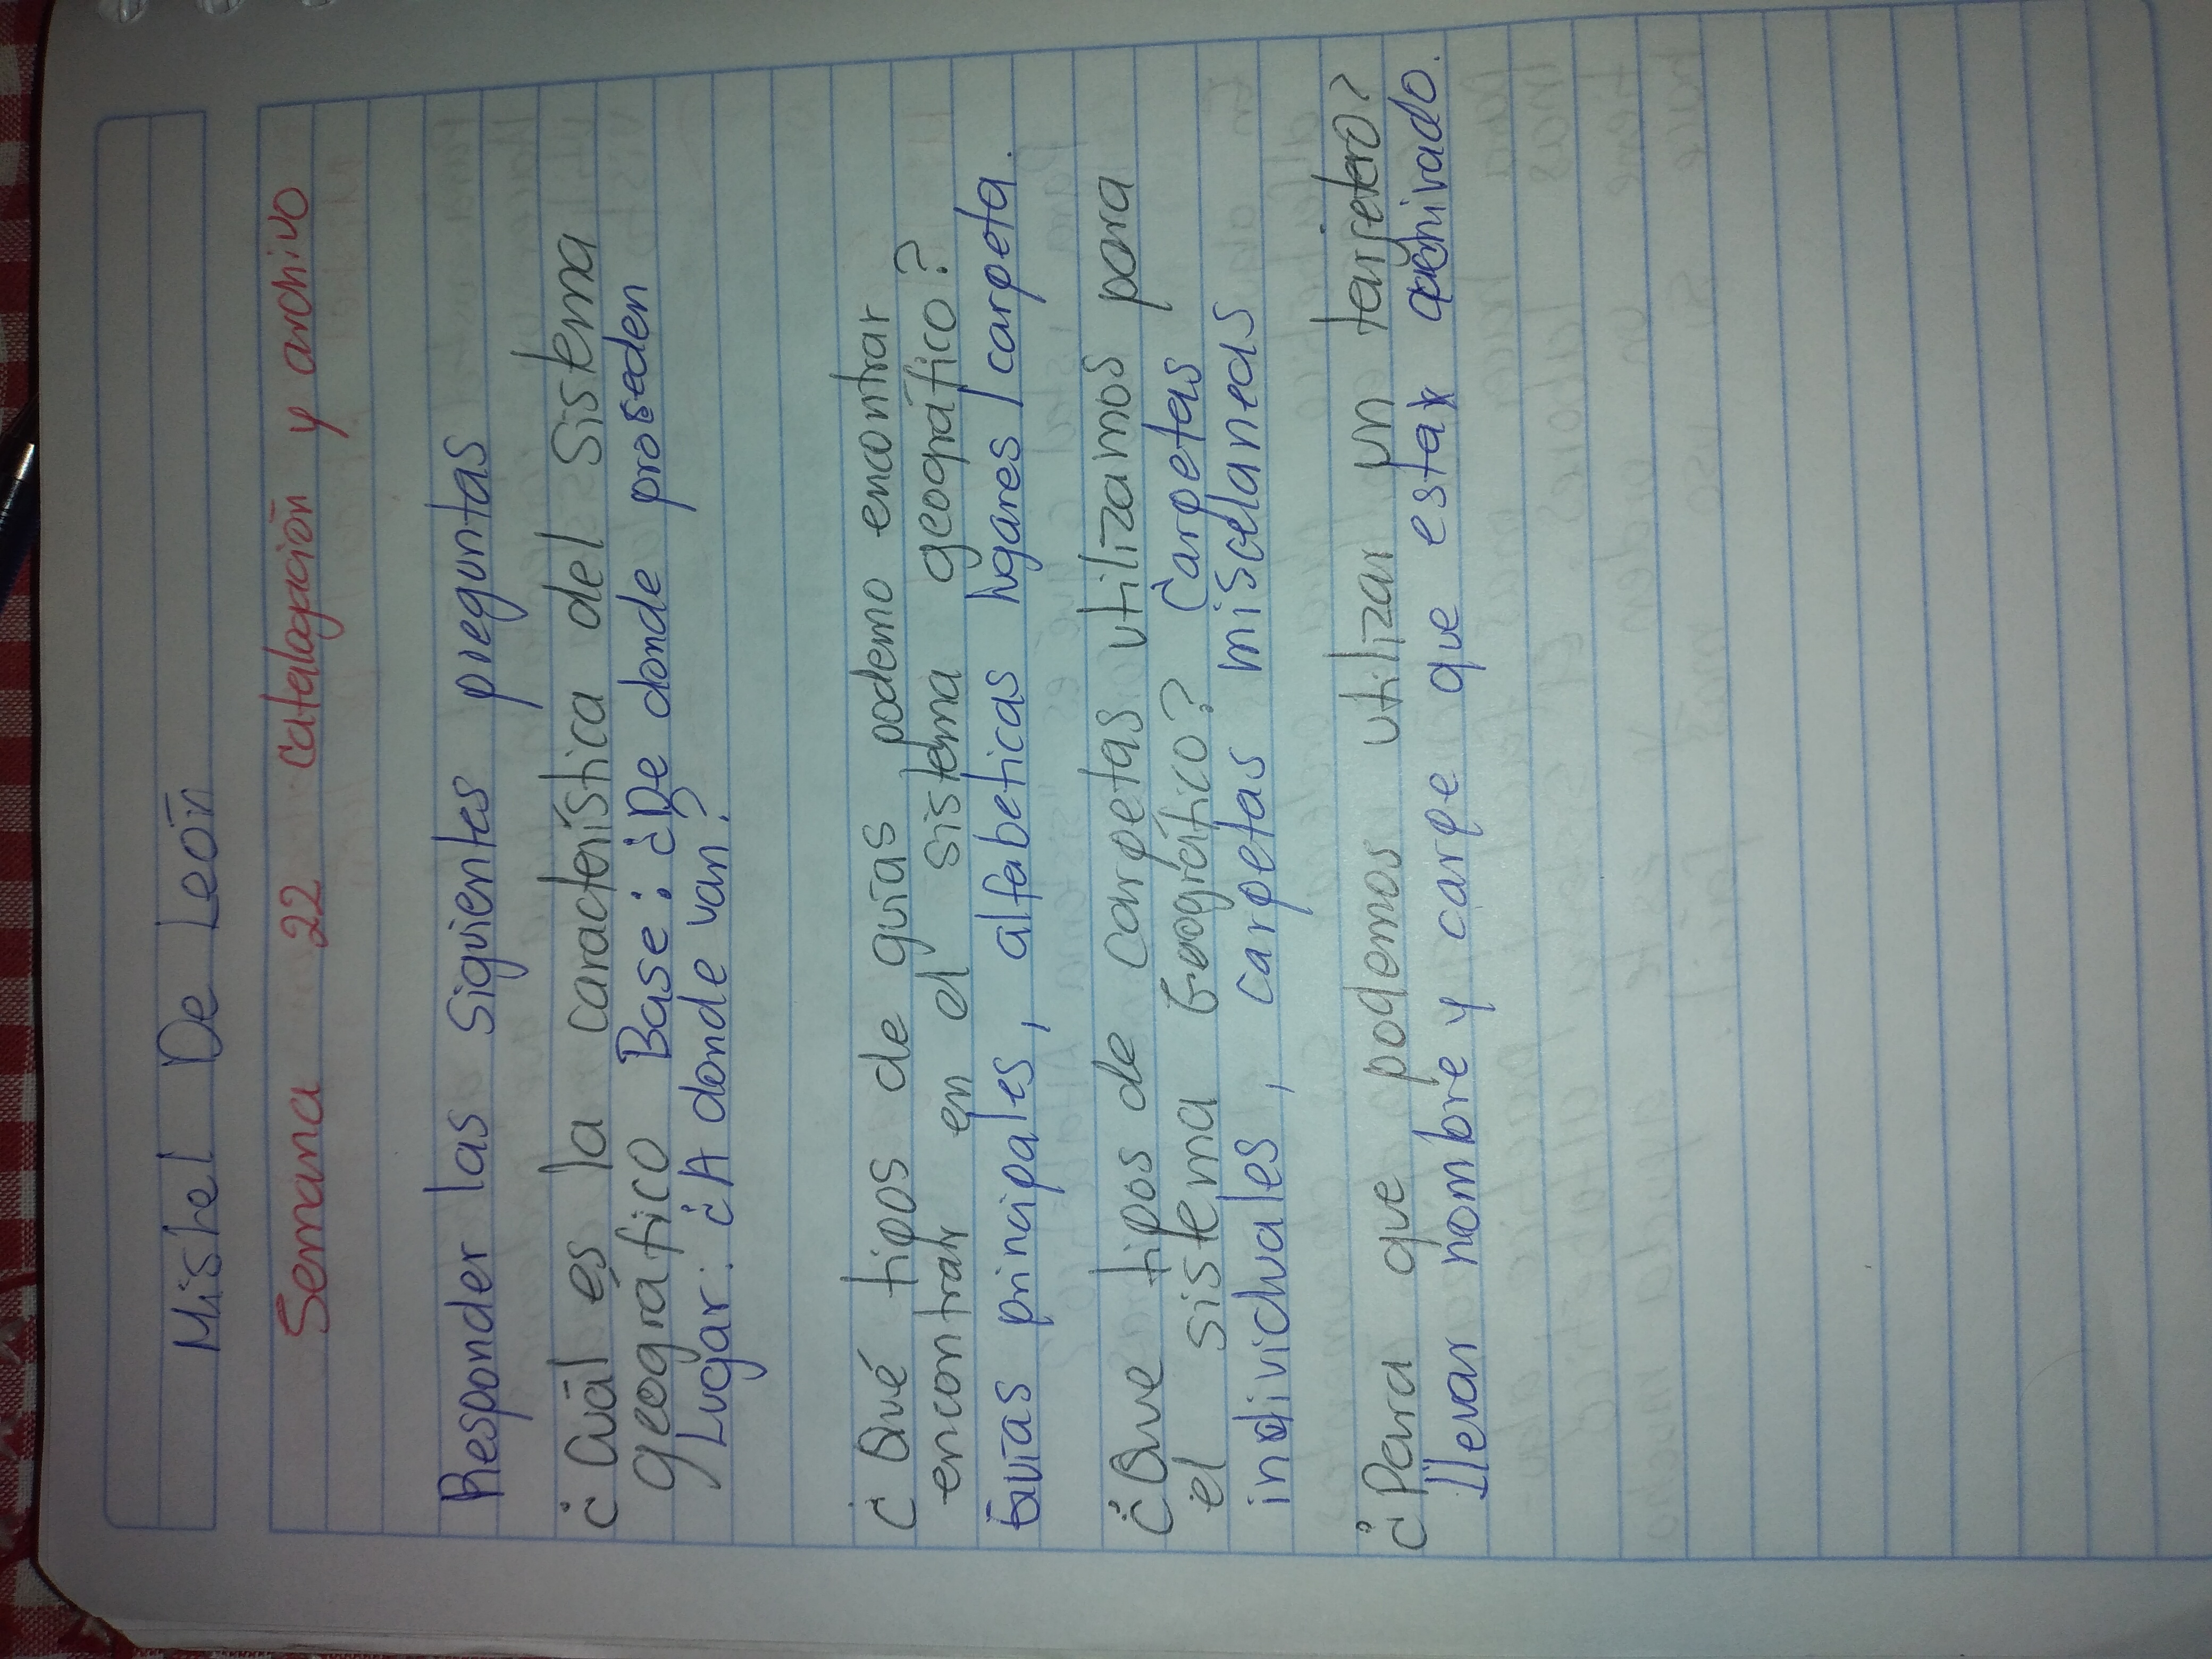 Mishel De León
Semana 22 catalogación y archivo
Responder las siguientes preguntas
¿Cuál es la característica del sistema
geográfico Base: ¿De donde proseden
Lugar: ¿A donde van?
¿Qué tipos de guías podemo encontrar
encontrar en el sistema geográfico?
Guías principales, alfabeticas lugares/carpeta.
¿Que tipos de carpetas utilizamos para
el sistema Geográfico? Carpetas
individuales, carpetas miscelaneas
¿Para que podemos utilizar un tarjetero?
llevar nombre y carpe que estar